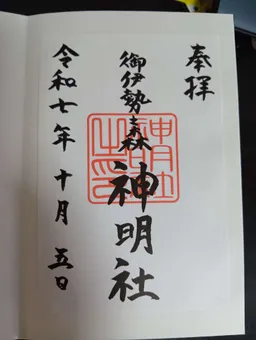 奉拝
御伊勢森 神明社
神明社之印
令和七年 十月 五日